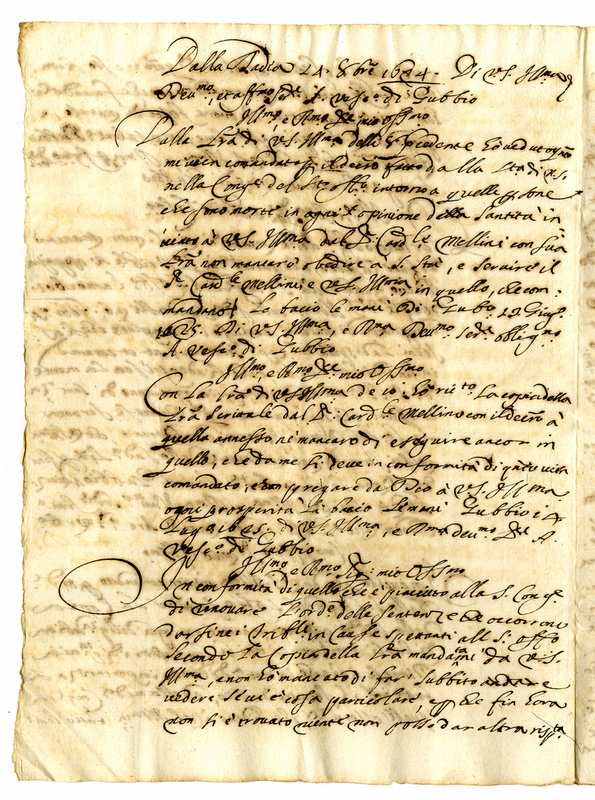 Dalla Badia 24. 8bre 1624. Di VS. Illma
Devmo, et affmo Serre A. Vescº. di Gubbio
Illmo, e Rmo Sre mio ossmo
Dalla Lra di VS. Illma delli 8 pcedente hò veduto qnto
mi vien comandato p il decreto fatto dalla Stà di N.S.
nella Congne del Sto offº. intorno a quelle psone
che sono morte in opinione della Santità in
viato à VS. Illma dal Sr. Cardle Mellini con sua
Lra non mancarò obedire à S. Stà, e servire il
Sr. Cardle Mellini e VS. Illma in quello, che con
mandano. Le bacio le mani Di Gubo. 12 Giugº.
1625. Di VS. Illma, e Rma Devmo Serre obligmo
A. Vescº. di Gubbio
Illmo e Rmo Sre. mio Ossmo
Con la lra di VS Illma de 10. hò ricto. la copia della
Lra scrittale dal Sr. Cardle Mellino con il decreto à
quella annesso ne mancarò di esseguire ancor in
quello, che da me si deve in conformità di qnto vien
comandato, e pregarò da Dio à VS. Illma
ogni prosperità Le bacio le mani Gubbio i 4
Lugº 1625. di VS. Illma, e Rma devmo Sre A.
Vescº. di Gubbio
Illmo e Rmo Sig: mio Ossmo
In conformità di quello che è piaciuto alla S. Congne
di rinovare l'orde. delle sentenze che occorrono
darsi nei Tribli in cause spettanti all S. offo
secondo la copia della Lra mandatami da VS.
Illma, e non hò mancato di far subbito andare
vedere se vi è cosa particolare, e pche fin hora
non si è trovato niente non posso dar altra rispta